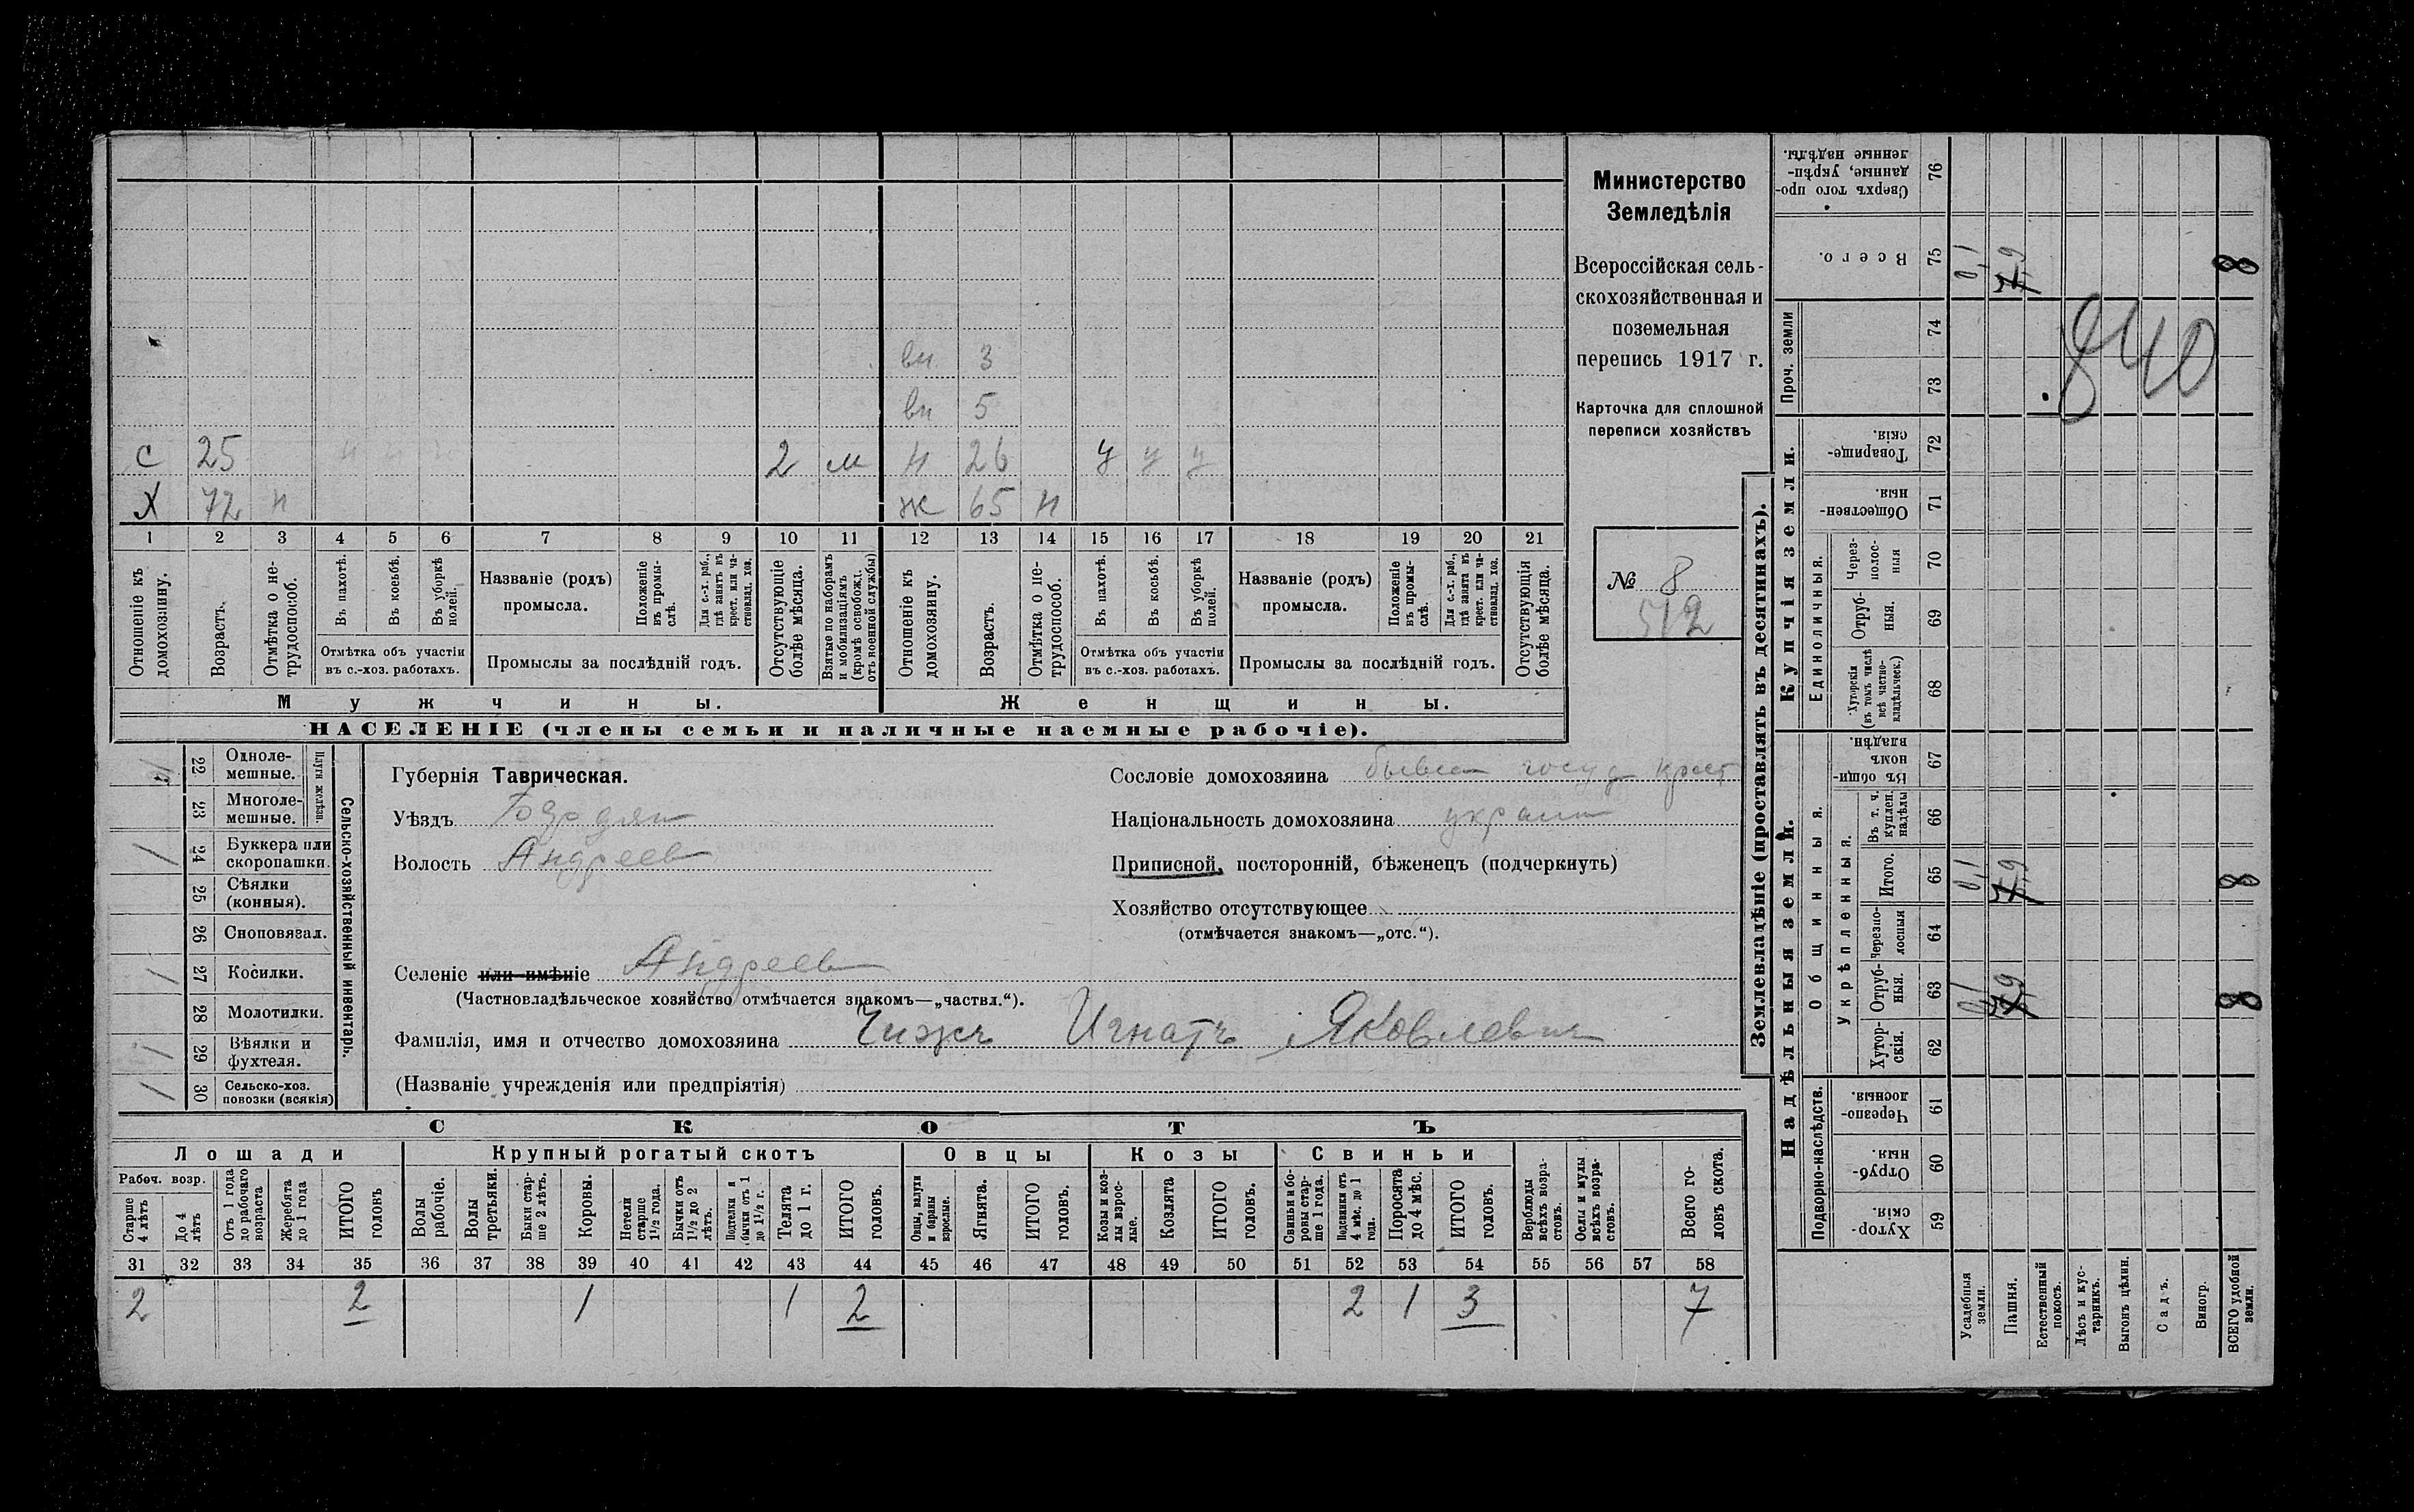 Министерство
Земледѣлія
Всероссійская сель-
скохозяйственная и
поземельная
перепись 1917 г.
Карточка для сплошной
переписи хозяйствъ
№ 8
512
вн 3
вн 5
с 25 2 м н 26 у у у
Х 72 н ж 65 н
1 2 3 4 5 6 7 8 9 10 11 12 13 14 15 16 17 18 19 20 21
Отношеніе къ домохозяину.
Возрастъ.
Отмѣтка о не-
трудоспособ.
Въ пахотѣ.
Въ косьбѣ.
Въ уборкѣ полей.
Отмѣтка объ участіи
въ с.-хоз. работахъ.
Названіе (родъ)
промысла.
Положеніе въ промы-
слѣ.
Для с.-х. раб., гдѣ занятъ въ крест. или ча-
стновлад. хоз.
Промыслы за послѣдній годъ.
Отсутствующіе болѣе мѣсяца.
Взятые по наборамъ и мобилизаціямъ (кромѣ освобожд. отъ военной службы)
Отношеніе къ домохозяину.
Возрастъ.
Отмѣтка о не-
трудоспособ.
Въ пахотѣ.
Въ косьбѣ.
Въ уборкѣ полей.
Отмѣтка объ участіи
въ с.-хоз. работахъ.
Названіе (родъ)
промысла.
Положеніе въ промы-
слѣ.
Для с.-х. раб., гдѣ занята въ крест. или ча-
стновлад. хоз.
Промыслы за послѣдній годъ.
Отсутствующія болѣе мѣсяца.
Мужчины. Женщины.
НАСЕЛЕНІЕ (члены семьи и наличные наемные рабочіе).
Сельско-хозяйственный инвентарь.
Плуги желѣзн.
22 Одноле-
мешные.
23 Многоле-
мешные.
24 Буккера или
скоропашки. 1
25 Сѣялки
(конныя).
26 Сноповязал.
27 Косилки. 1
28 Молотилки.
29 Вѣялки и
фухтеля. 1
30 Сельско-хоз.
повозки (всякія) 1
Губернія Таврическая.
Уѣздъ Бердян
Волость Андреев
Селеніе или имѣніе Андреев
(Частновладѣльческое хозяйство отмѣчается знакомъ—„частвл.“).
Фамилія, имя и отчество домохозяина Чижъ Игнатъ Яковлевич
(Названіе учрежденія или предпріятія)
Сословіе домохозяина бывш госуд крест
Національность домохозяина украин
Приписной, посторонній, бѣженецъ (подчеркнуть)
Хозяйство отсутствующее
(отмѣчается знакомъ—„отс.“).
СКОТЪ
Лошади Крупный рогатый скотъ Овцы Козы Свиньи
Рабоч. возр.
Старше 4 лѣтъ
До 4 лѣтъ
Отъ 1 года до рабочаго возраста
Жеребята до 1 года
ИТОГО головъ
Волы рабочіе.
Волы третьяки.
Быки стар-
ше 2 лѣтъ.
Коровы.
Нетели старше 1½ года.
Бычки отъ 1½ до 2 лѣтъ.
Подтелки и бычки отъ 1 до 1½ г.
Телята до 1 г.
ИТОГО головъ.
Овцы, валухи и бараны взрослые.
Ягнята.
ИТОГО головъ.
Козы и коз-
лы взрос-
лые.
Козлята
ИТОГО головъ.
Свиньи и бо-
ровы стар-
ше 1 года.
Подсвинки отъ 4 мѣс. до 1 года.
Поросята до 4 мѣс.
ИТОГО головъ.
Верблюды всѣхъ возра-
стовъ.
Ослы и мулы всѣхъ возра-
стовъ.
Всего го-
ловъ скота.
31 32 33 34 35 36 37 38 39 40 41 42 43 44 45 46 47 48 49 50 51 52 53 54 55 56 57 58
2 2 1 1 2 2 1 3 7
Землевладѣніе (проставлять въ десятинахъ).
Надѣльныя земли. Купчія земли. Проч. земли
Подворно-наслѣдств.
Общинныя.
Укрѣпленныя.
Единоличныя.
59 Хутор-
скія.
60 Отруб-
ныя.
61 Черезпо-
лосныя.
62 Хутор-
скія.
63 Отруб-
ныя. 0,1 7,9 8
64 Черезпо-
лосныя
65 Итого. 0,1 7,9 8
66 Въ т. ч. куплен. надѣлы
67 Въ общин-
номъ владѣн.
68 Хуторскія (въ томъ числѣ всѣ частно-
владѣльческ.)
69 Отруб-
ныя.
70 Через-
полос-
ныя
71 Обществен-
ныя.
72 Товарище-
скія.
73
74
75 Всего. 0,1 7,9 8
76 Сверхъ того про-
данные, укрѣп-
ленные надѣлы.
840
Усадебныя земли.
Пашня.
Естественный покосъ.
Лѣсъ и кус-
тарникъ.
Выгонъ цѣлин.
Садъ.
Виногр.
ВСЕГО удобной земли.